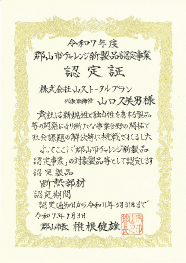 令和7年度
郡山市チャレンジ新製品認定事業
認定証
株式会社山ストータルプラン
代表取締役 山口久美男様
貴社は新規性と独自性を有する製品
等の開発により新たな事業分野の開拓で
社会課題の解決等に挑戦されました
よってここに「郡山市チャレンジ新製品
認定事業」の対象製品等として認定します
認定製品
断熱部材
認定期間
認定通知日から令和11年3月31日まで
令和7年7月3日
郡山市長 椎根健雄